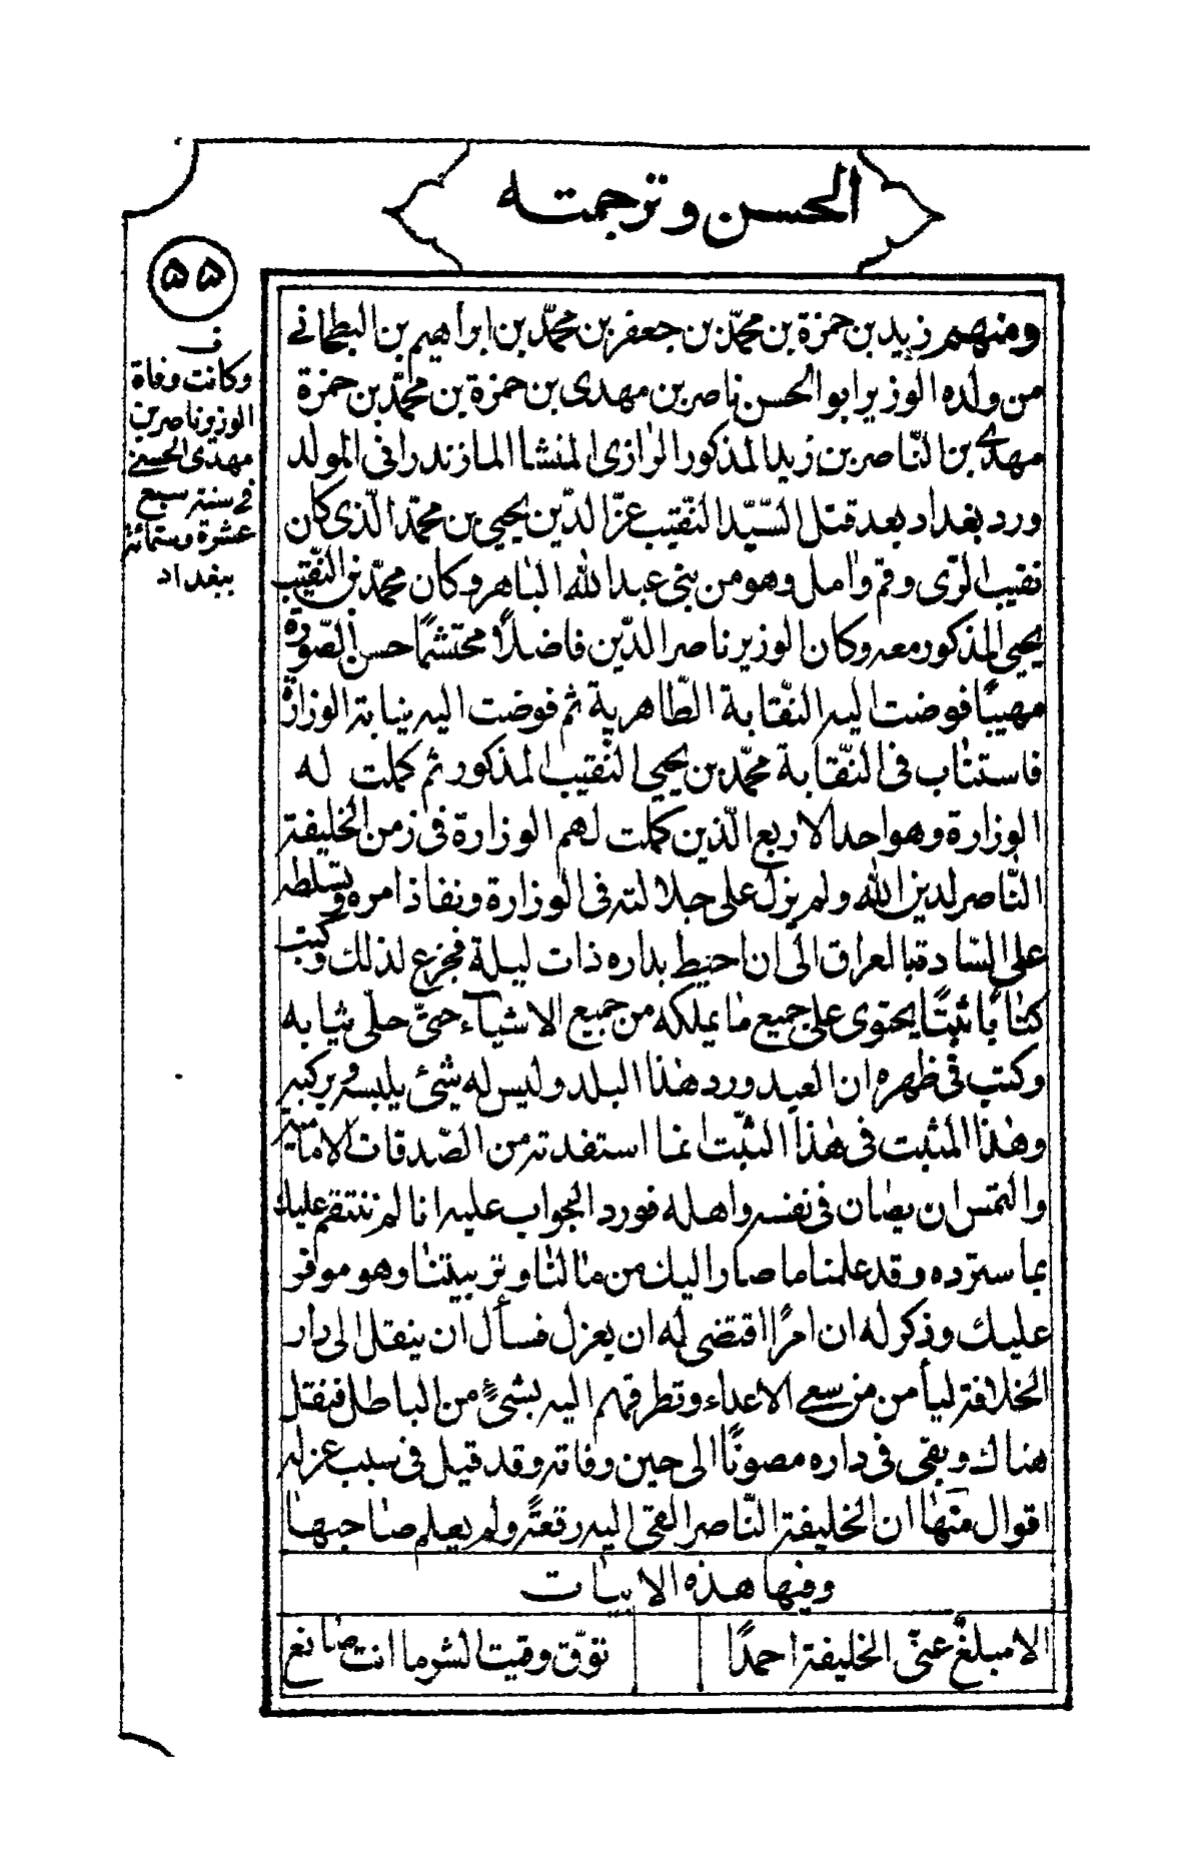 الحسن وترجمته
٥٥
ومنهم زيد بن حمزة بن محمّد بن جعفر بن محمّد بن ابراهيم بن البطحانے
من ولده الوزير ابو الحسن ناصر بن مهدى بن حمزة بن محمّد بن حمزة
مهدى بن النّاصر بن زيد المذكور الرازى المنشا المازندرانى المولد
ورد بغداد بعد قتل السّيّد النقيب عزّ الدّين يحيى بن محمّد الّذى كان
نقيب الرّى وقم وامل وهو من بنى عبد الله الباهر وكان محمّد بن النّقيب
يحيى المذكور معه وكان الوزير ناصر الدّين فاضلاً محتشمًا حسن الصّورة
مهيبًا فوضت اليه النّقابة الطّاهرية ثم فوضت اليه نيابة الوزارة
فاستناب فى النّقابة محمّد بن يحيى النّقيب المذكور ثم كملت له
الوزارة وهو احد الاربع الّذين كملت لهم الوزارة فى زمن الخليفة
النّاصر لدين الله ولم يزل على جلالته فى الوزارة ونفاذ امره وتسلطه
على السّادة بالعراق الى ان احيط بداره ذات ليلة فجزع لذلك وكتب
كتابًا ثبتًا يحتوى على جميع ما يملكه من جميع الاشياء حتّى حلّى ثيابه
وكتب فى ظهره ان العبد ورد هذا البلد وليس له شئ يلبسه ويركبه
وهذا المثبت فى هذا الثّبت انما استفدته من الصّدقات الامامية
والتمس ان يصان فى نفسه واهله فورد الجواب عليه انا لم ننتقم عليك
بما سترده وقد علمنا ما صار اليك من مالنا وتربيتنا وهو موفر
عليك وذكر له ان امرًا اقتضى له ان يعزل فسأل ان ينقل الى دار
الخلافة ليأمن من سعى الاعداء وتطرقهم اليه بشئٍ من الباطل فنقل
هناك وبقى فى داره مصونًا الى حين وفاته وقد قيل فى سبب عزله
اقوال منها ان الخليفة النّاصر القى اليه رقعةً ولم يعلم صاحبها
وفيها هذه الابيات
الا مبلغٌ عنّى الخليفة احمدًا
توّق وقيت الشر ما انت صانع
ف
وكانت وفاة
الوزير ناصر بن
مهدى الحسنى
فى سنة سبع
عشرة وستمائة
ببغداد